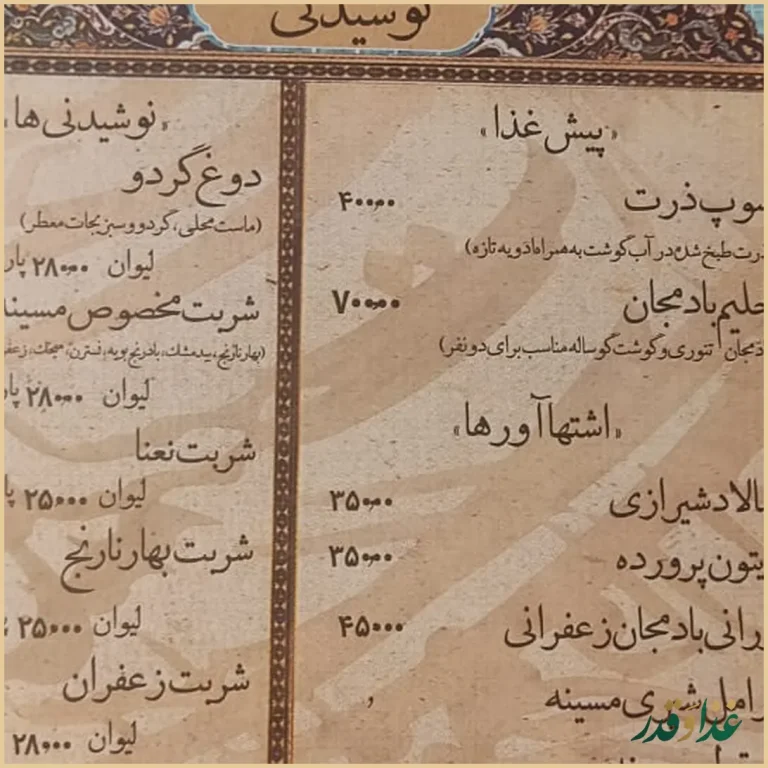 نوشیدنی
«پیش غذا»
سوپ ذرت ۴۰۰۰۰
ذرت طبخ شده در آب گوشت به همراه ادویه تازه)
حلیم بادمجان ۷۰۰۰۰
تنوری و گوشت گوساله مناسب برای دو نفر)
«اشتهاآورها»
سالاد شیرازی ۳۵۰۰۰
زیتون پرورده ۳۵۰۰۰
بورانی بادمجان زعفرانی ۴۵۰۰۰
مسینه
«نوشیدنی ها»
دوغ گردو
(ماست محلی، گردو و سبزیجات معطر)
لیوان ۲۸۰۰۰
شربت مخصوص مسینه
(بهارنارنج، بیدمشک، بادرنجبویه، نسترن،
لیوان ۲۸۰۰۰
شربت نعنا
لیوان ۲۵۰۰۰
شربت بهارنارنج
لیوان ۲۵۰۰۰
شربت زعفران
لیوان ۲۸۰۰۰
غذاوقدر